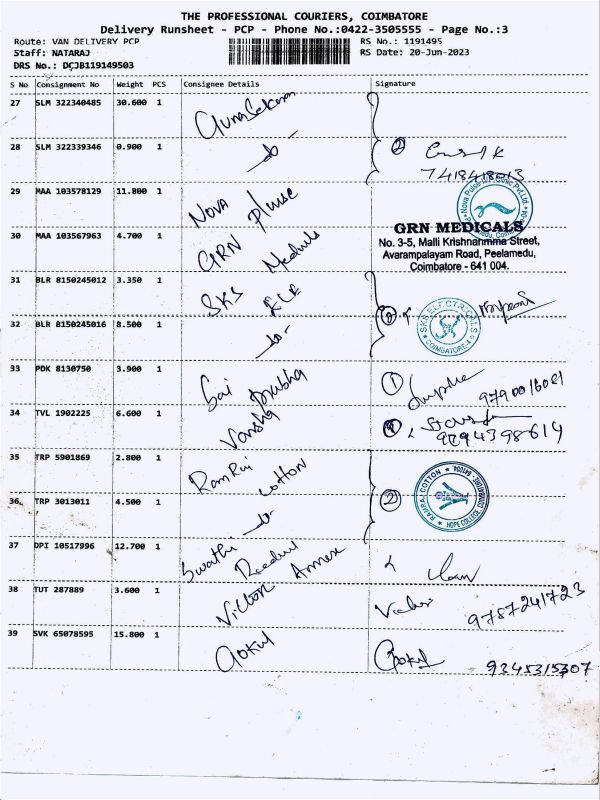 THE PROFESSIONAL COURIERS, COIMBATORE
Delivery Runsheet - PCP - Phone No.:0422-3505555 - Page No.:3
Route: VAN DELIVERY PCP RS No.: 1191495
Staff: NATARAJ RS Date: 20-Jun-2023
DRS No.: DCJB119149503
S No Consignment No Weight PCS Consignee Details Signature
27 SLM 322340485 30.600 1
28 SLM 322339346 0.900 1 -do- 2
7418418013
29 MAA 103578129 11.800 1 NOVA Plusc
30 MAA 103567963 4.700 1 GRN Medicals
GRN MEDICALS
No. 3-5, Malli Krishnahmma Street,
Avarampalayam Road, Peelamedu,
Coimbatore - 641 004.
31 BLR 8150245012 3.350 1 SKS ELE
SKS ELECTRICALS COIMBATORE-4
32 BLR 8150245016 8.500 1 -do-
33 PDK 8130750 3.900 1 Sai Prabha 1
34 TVL 1902225 6.600 1 Varsha
9894398614
35 TRP 5901869 2.800 1 Ram Raj Cotton
RAMRAJ COTTON
36 TRP 3013011 4.500 1 -do- 2
37 DPI 10517996 12.700 1 Swathi
38 TUT 287889 3.600 1 Victor Annex
9787241723
39 SVK 65078595 15.800 1 Gokul Gokul 9245315307